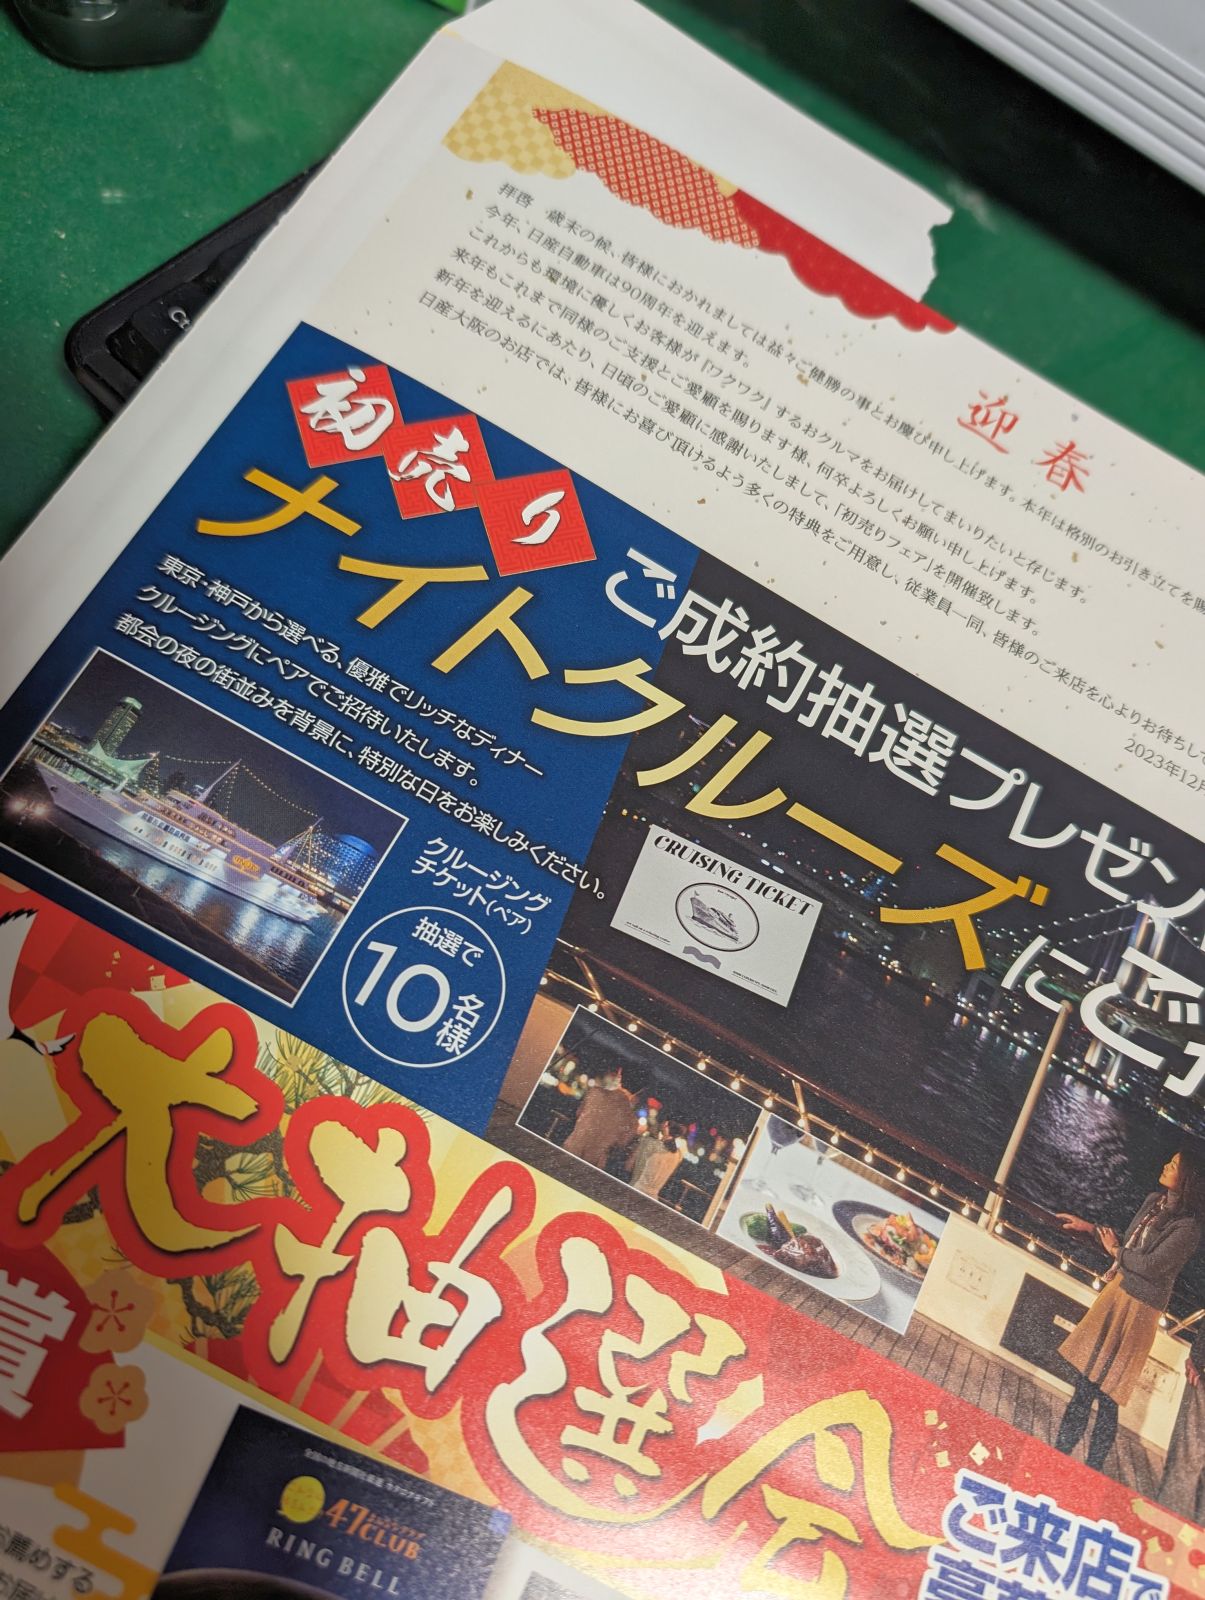 迎春
拝啓　歳末の候、皆様におかれましては益々ご健勝の事とお慶び申し上げます。本年は格別のお引き立てを賜
今年、日産自動車は90周年を迎えます。
これからも環境に優しくお客様が『ワクワク』するおクルマをお届けしてまいりたいと存じます。
来年もこれまで同様のご支援とご愛顧を賜ります様、何卒よろしくお願い申し上げます。
新年を迎えるにあたり、日頃のご愛顧に感謝いたしまして、「初売りフェア」を開催致します。
日産大阪のお店では、皆様にお喜び頂けるよう多くの特典をご用意し、従業員一同、皆様のご来店を心よりお待ちして
2023年12月
初売り
ご成約抽選プレゼン
ナイトクルーズにご
東京・神戸から選べる、優雅でリッチなディナー
クルージングにペアでご招待いたします。
都会の夜の街並みを背景に、特別な日をお楽しみください。
クルージング
チケット(ペア)
抽選で
10名様
CRUISING TICKET
大抽選会
賞
47CLUB
RING BELL
お薦めする
お届け
ご来店で